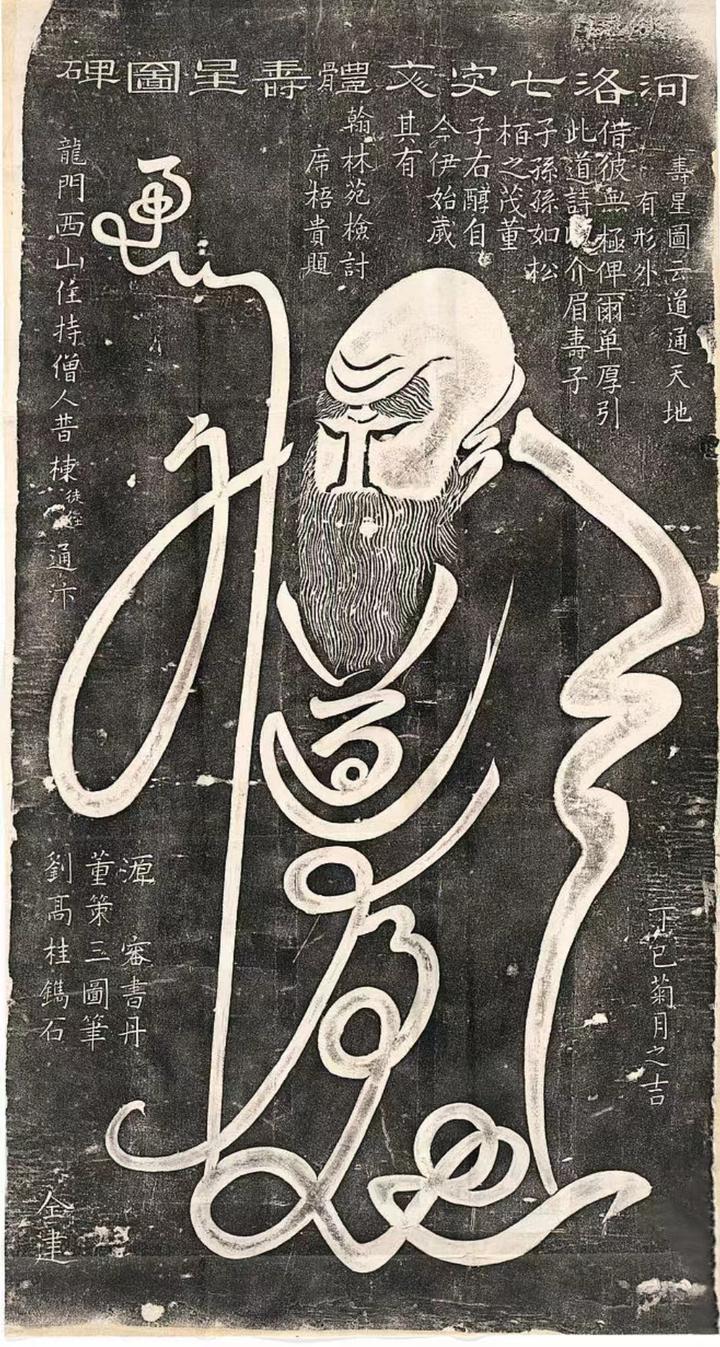 河洛七體壽星圖碑
壽星圖云道通天地
有形外
借彼無極俾爾單厚引
此道詩介眉壽子
子孫孫如松
栢之茂董
子右醇自
今伊始歳
其有
翰林苑檢討
席梧貴題
龍門西山住持僧人昔棟徒侄通汴
丁巳菊月之吉
源審書丹
董策三圖筆
劉髙桂鐫石
仝建